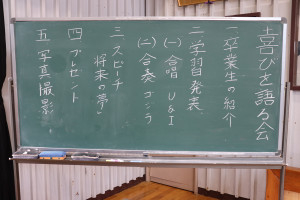 喜びを語る会
一 卒業生の紹介
二 学習発表
(一) 合唱 U&I
(二) 合奏 ゴジラ
三 スピーチ
「将来の夢」
四 プレゼント
五 写真撮影